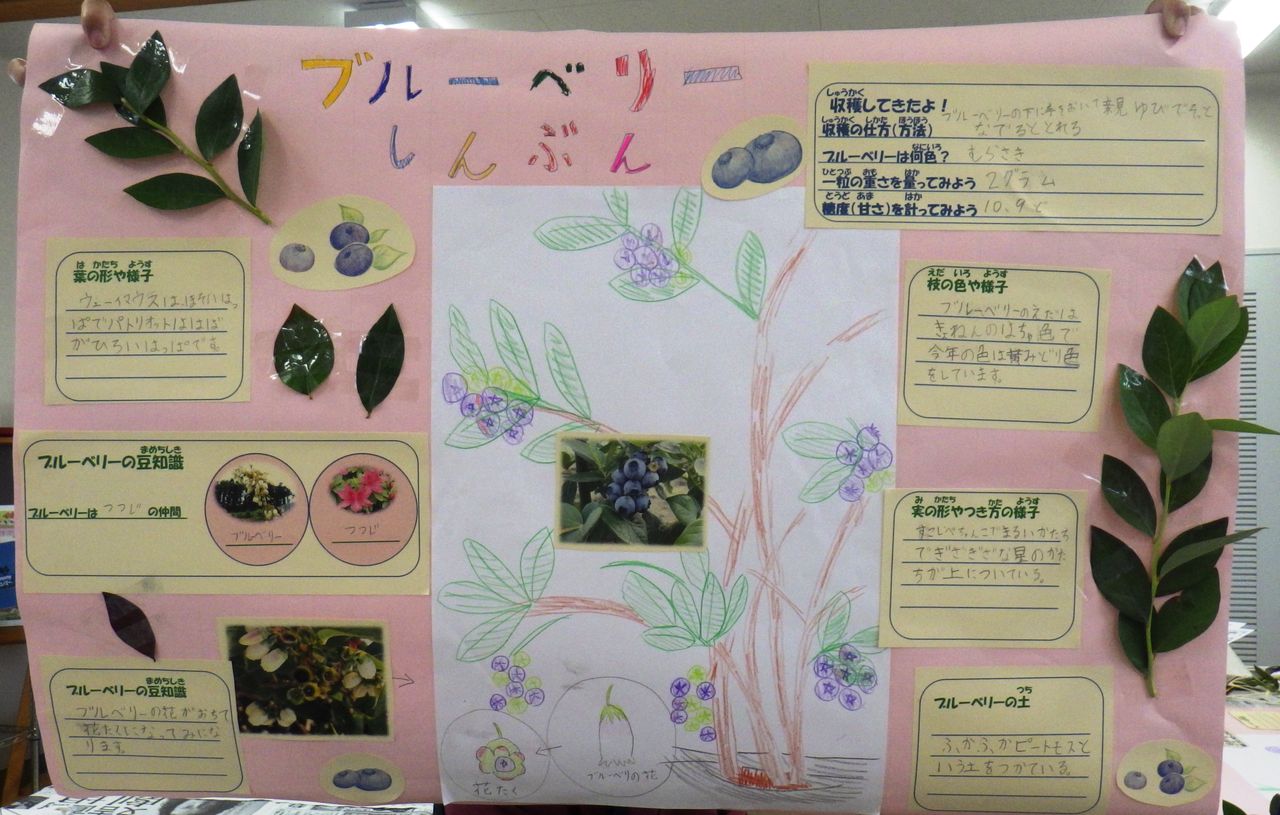 ブルーベリー
しんぶん
しゅうかく
収穫してきたよ！
しゅうかく しかた ほうほう
収穫の仕方（方法） ブルーベリーの下に手をおいて親ゆびでそっと
なでるととれる
なにいろ
ブルーベリーは何色？ むらさき
ひとつぶ おも はか
一粒の重さを量ってみよう 2グラム
とうど あま はか
糖度（甘さ）を計ってみよう 10、9ど
は かたち ようす
葉の形や様子
ウェイマウスは、ほそいはっ
ぱでパトリオットははば
がひろいはっぱです。
まめちしき
ブルーベリーの豆知識
ブルーベリーは つつじ の仲間
ブルーベリー
つつじ
まめちしき
ブルーベリーの豆知識
ブルベリーの花がおちて
花たくになってみにな
ります。
花たく
ブルーベリの花
えだ いろ ようす
枝の色や様子
ブルーベリーのえだは
きょねんのはちゃ色で
今年の色は黄みどり色
をしています。
み かたち かた ようす
実の形やつき方の様子
すこしぺちゃんこでまるいかたち
でぎざぎざな星のかた
ちが上についている。
つち
ブルーベリーの土
ふかふかピートモスと
いう土をつかている。